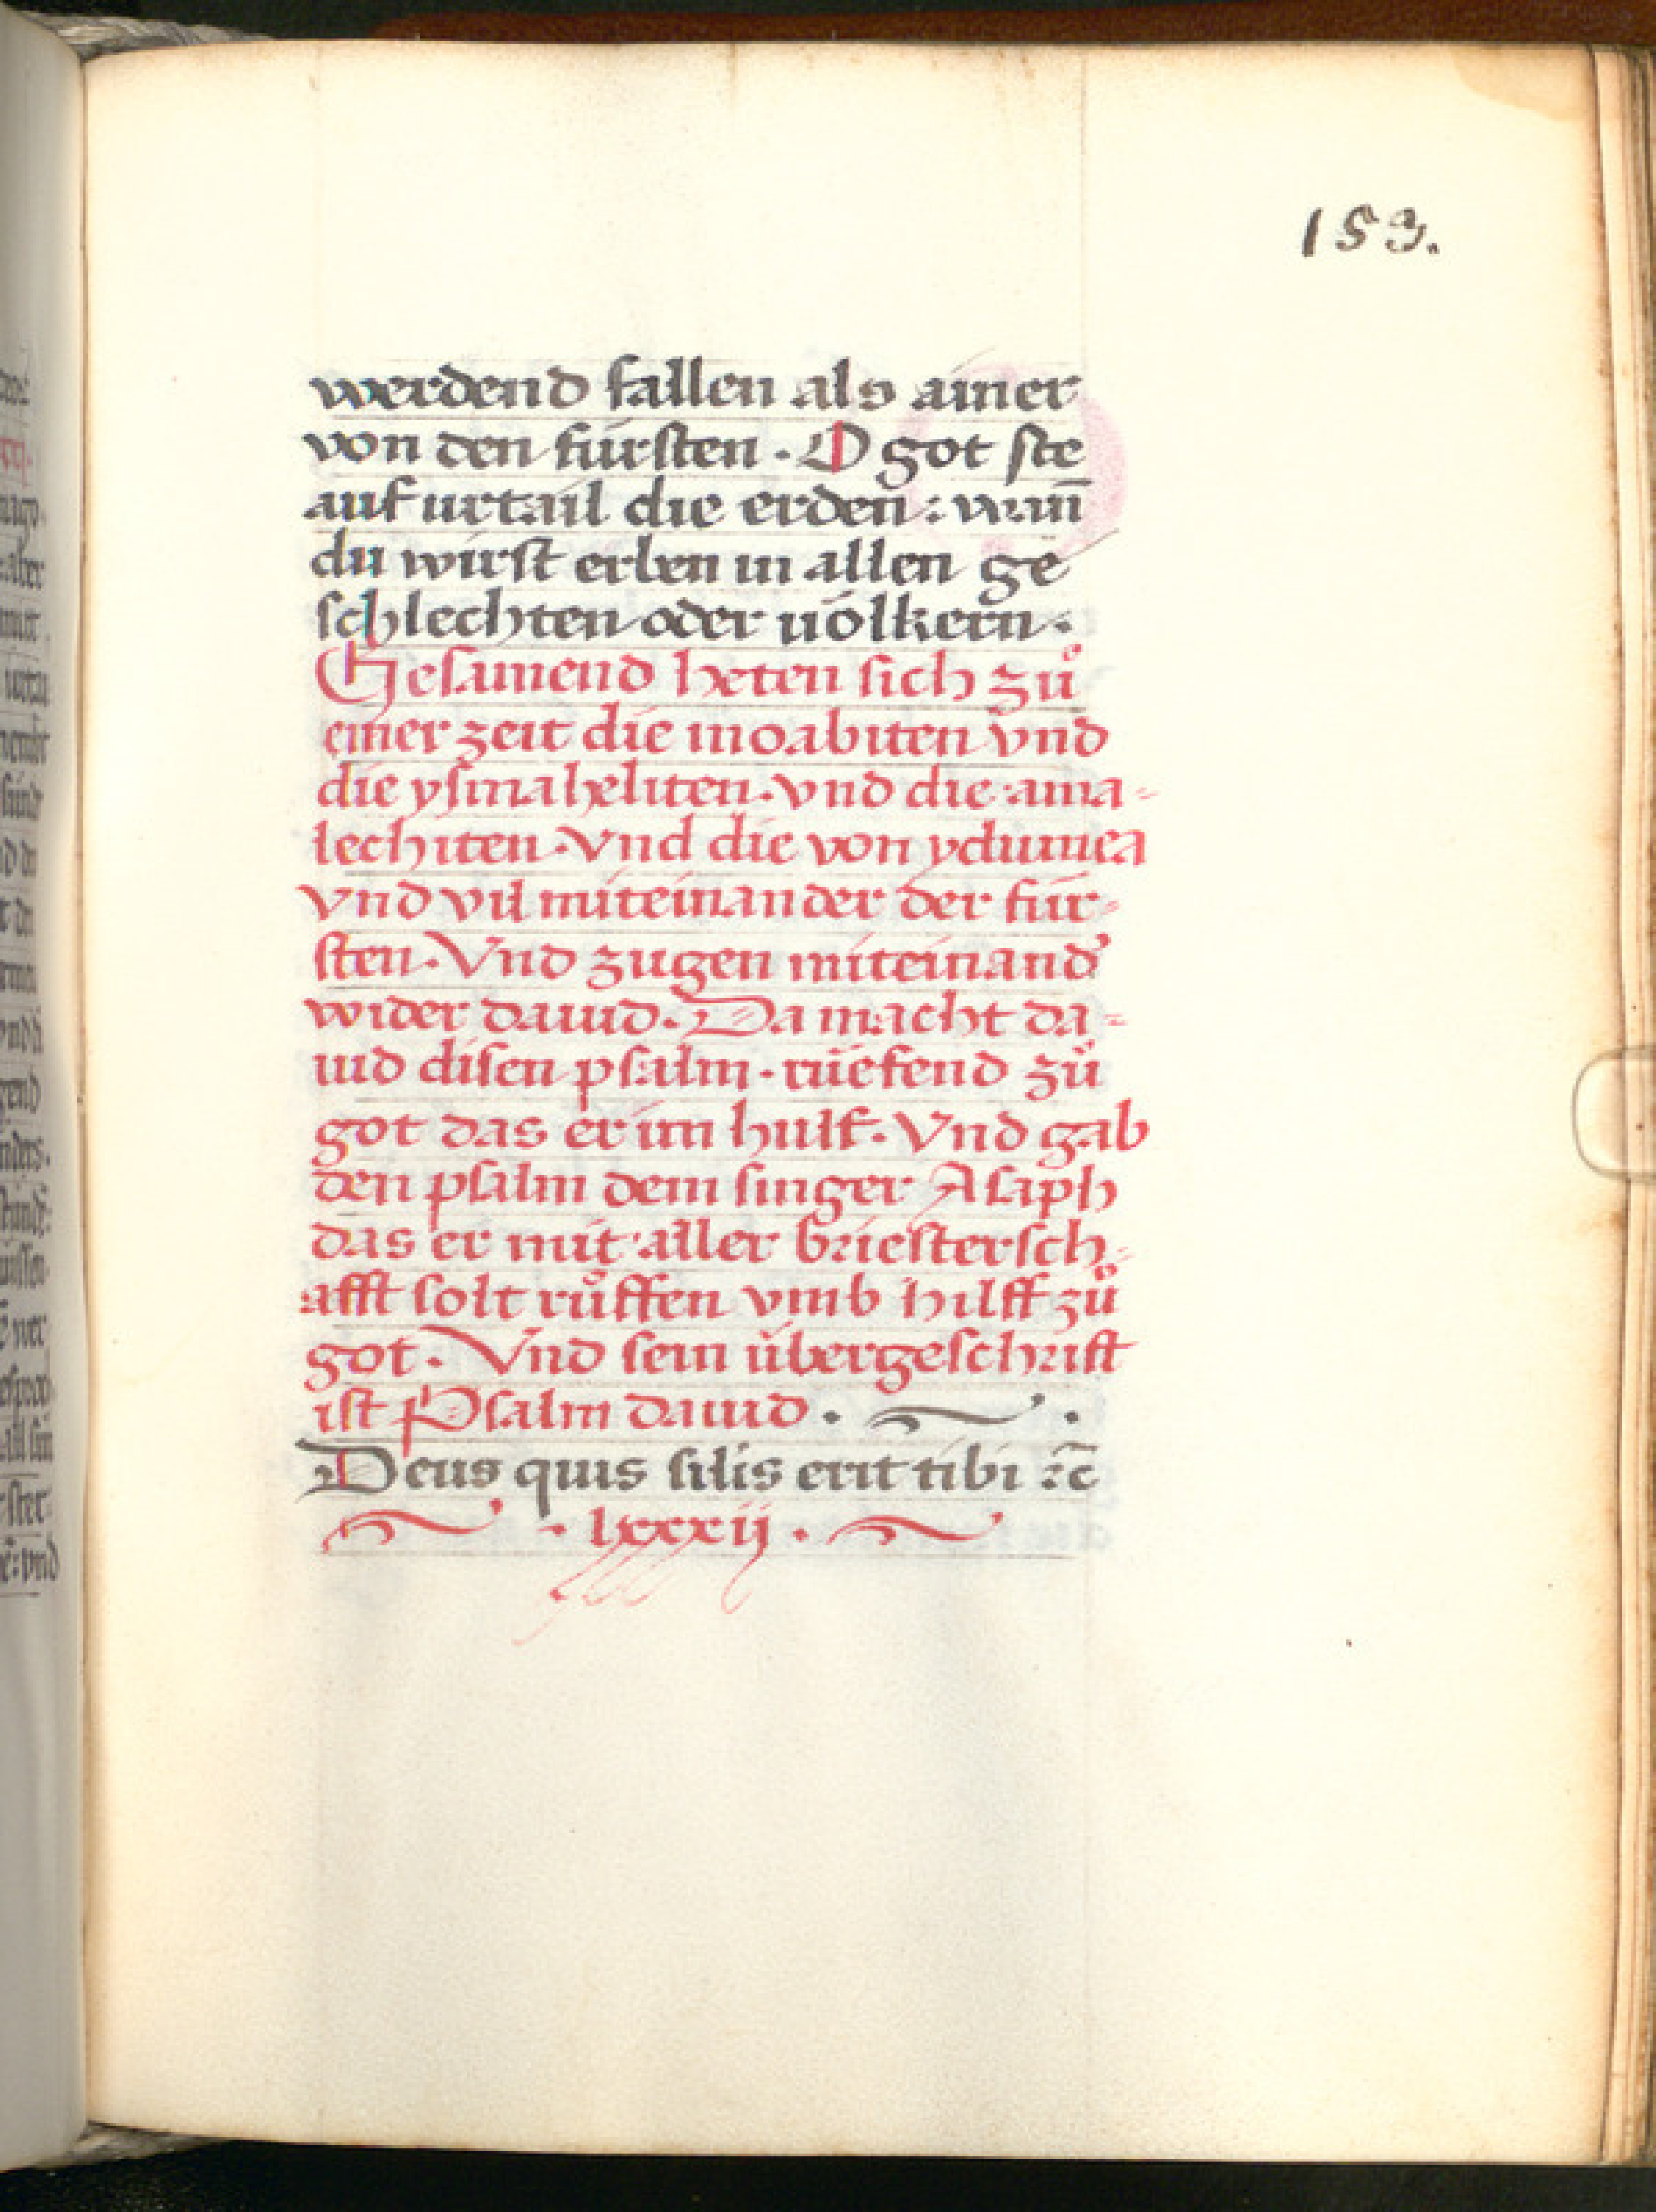 153.
werdend fallen als ainer
von den fürsten · O got ste
auf urtail die erden : wañ
du wirst erben in allen ge
schlechten oder uölkern ·
Gesamend heten sich zů
einer zeit die moabiten vnd
die ysmaheliten · vnd die ama-
lechiten · Vnd die von ydumea
vnd vil miteinander der für-
sten · Vnd zugen miteinand
wider dauid · Da macht da-
uid disen psalm · rüefend zů
got das er im hulf · Vnd gab
den psalm dem singer Asaph
das er mit aller briestersch-
afft solt růffen vmb hilff zů
got · Vnd sein übergeschrift
ist Psalm dauid ·
Deus quis silis erit tibi ⁊c̄
· lxxxij ·